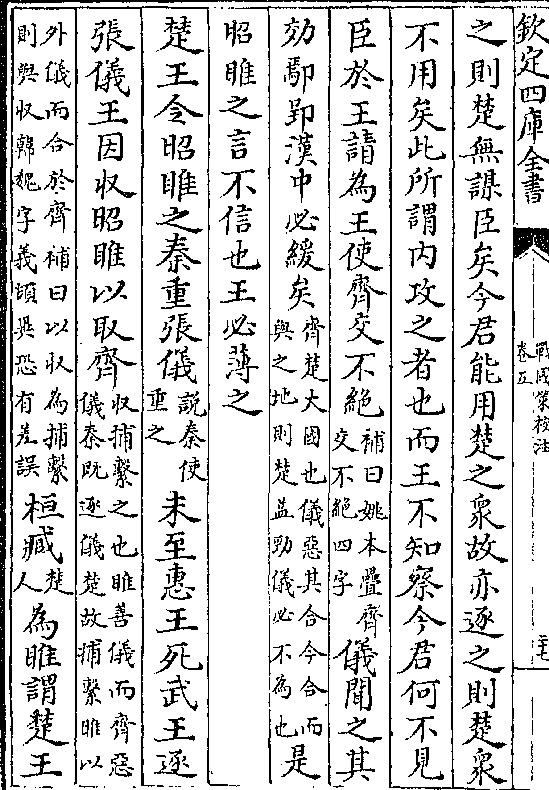 欽定四庫全書
戰國策校注
卷五
之則楚無謀臣矣今君能用楚之衆故亦逐之則楚衆
不用矣此所謂内攻之者也而王不知察今君何不見
臣於王請為王使齊交不絶補曰姚本疊齊交不絶四字儀聞之其
効鄢郢漢中必緩矣齊楚大國也儀惡其合今合而與之地則楚益勁儀必不為也是
昭睢之言不信也王必薄之
楚王令昭睢之秦重張儀說秦使重之未至惠王死武王逐
張儀王因收昭睢以取齊收捕繫之也睢善儀而齊惡儀秦既逐儀楚故捕繫睢以
外儀而合於齊補曰以收為捕繫則與收韓魏字義頓異恐有差誤桓臧楚人為睢謂楚王